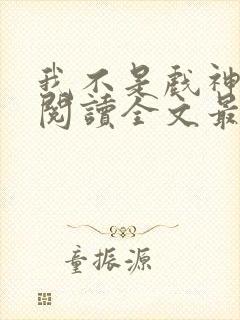 我不是戲神
閱讀全文最
童振源